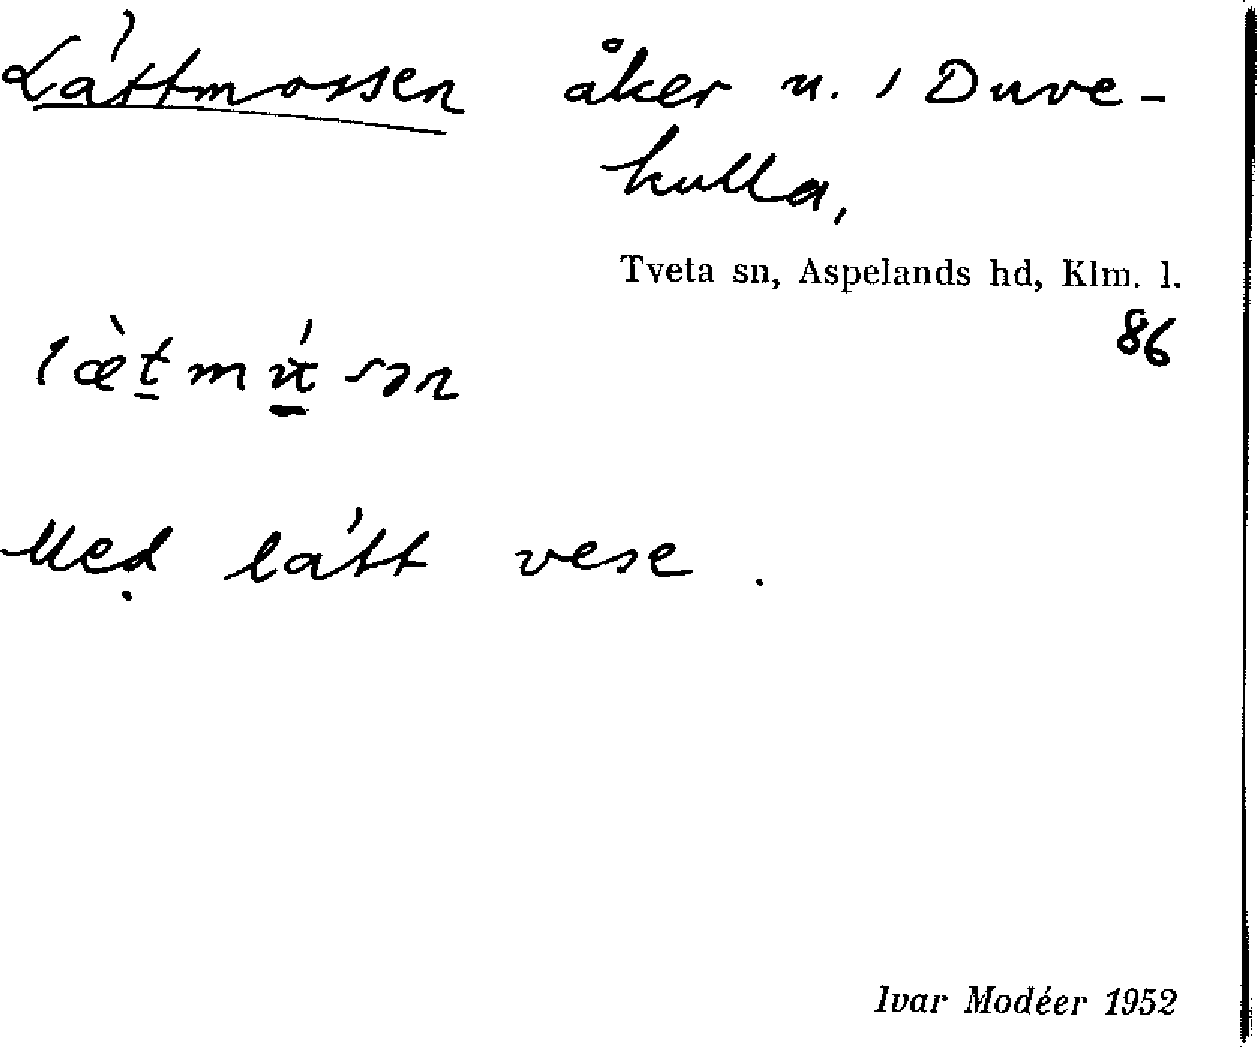 Lättmossen åker u. / Duve-
kulla,
Tveta sn, Aspelands hd, Klm. l.
86
Med lätt vese.
Ivar Modéer 1952